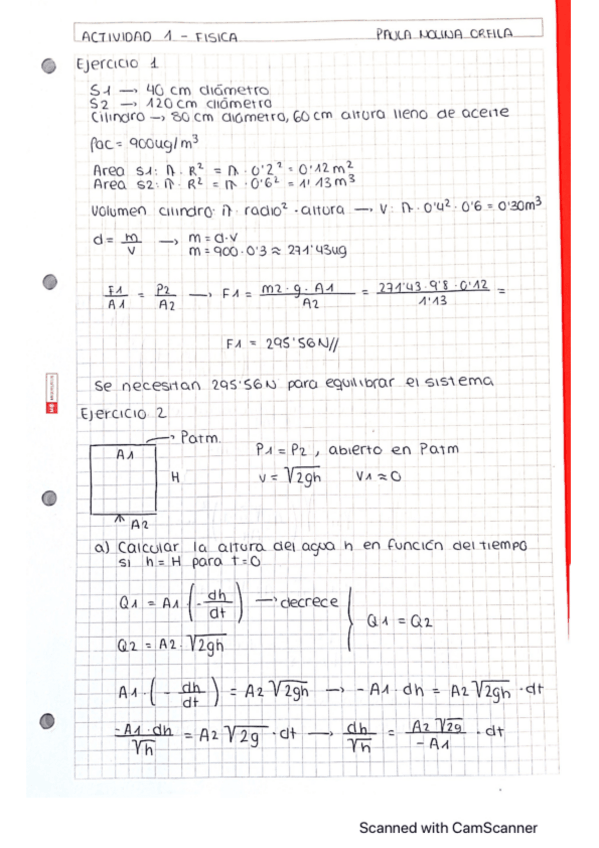 ACTIVIDAD 1 - FISICA PAULA MOLINA ORFILA
Ejercicio 1
S1 → 40 cm diámetro
S2 → 120 cm diámetro
Cilindro → 80 cm diámetro, 60 cm altura lleno de aceite
ρac = 900 ug/m³
Area S1: π · R² = π · 0'2² = 0'12 m²
Area S2: π · R² = π · 0'6² = 1'13 m³
Volumen cilindro: π · radio² · altura → V: π · 0'4² · 0'6 = 0'30 m³
d = m/v → m = d·v
m = 900 · 0'3 ≈ 271'43 ug
F1/A1 = P2/A2 → F1 = m2 · g · A1/A2 = 271'43 · 9'8 · 0'12/1'13 =
F1 = 295'56 N//
Se necesitan 295'56 N para equilibrar el sistema
Ejercicio 2
→ Patm.
A1
H
A2
P1 = P2, abierto en Patm
v = √2gh V1 ≈ 0
a) Calcular la altura del agua h en función del tiempo
si h = H para t = 0
Q1 = A1 (- dh/dt) → decrece
Q2 = A2 · √2gh
Q1 = Q2
A1 · (- dh/dt) = A2 √2gh → - A1 · dh = A2 √2gh · dt
-A1 · dh/√h = A2 √2g · dt → dh/√h = A2 √2g/- A1 · dt
Scanned with CamScanner